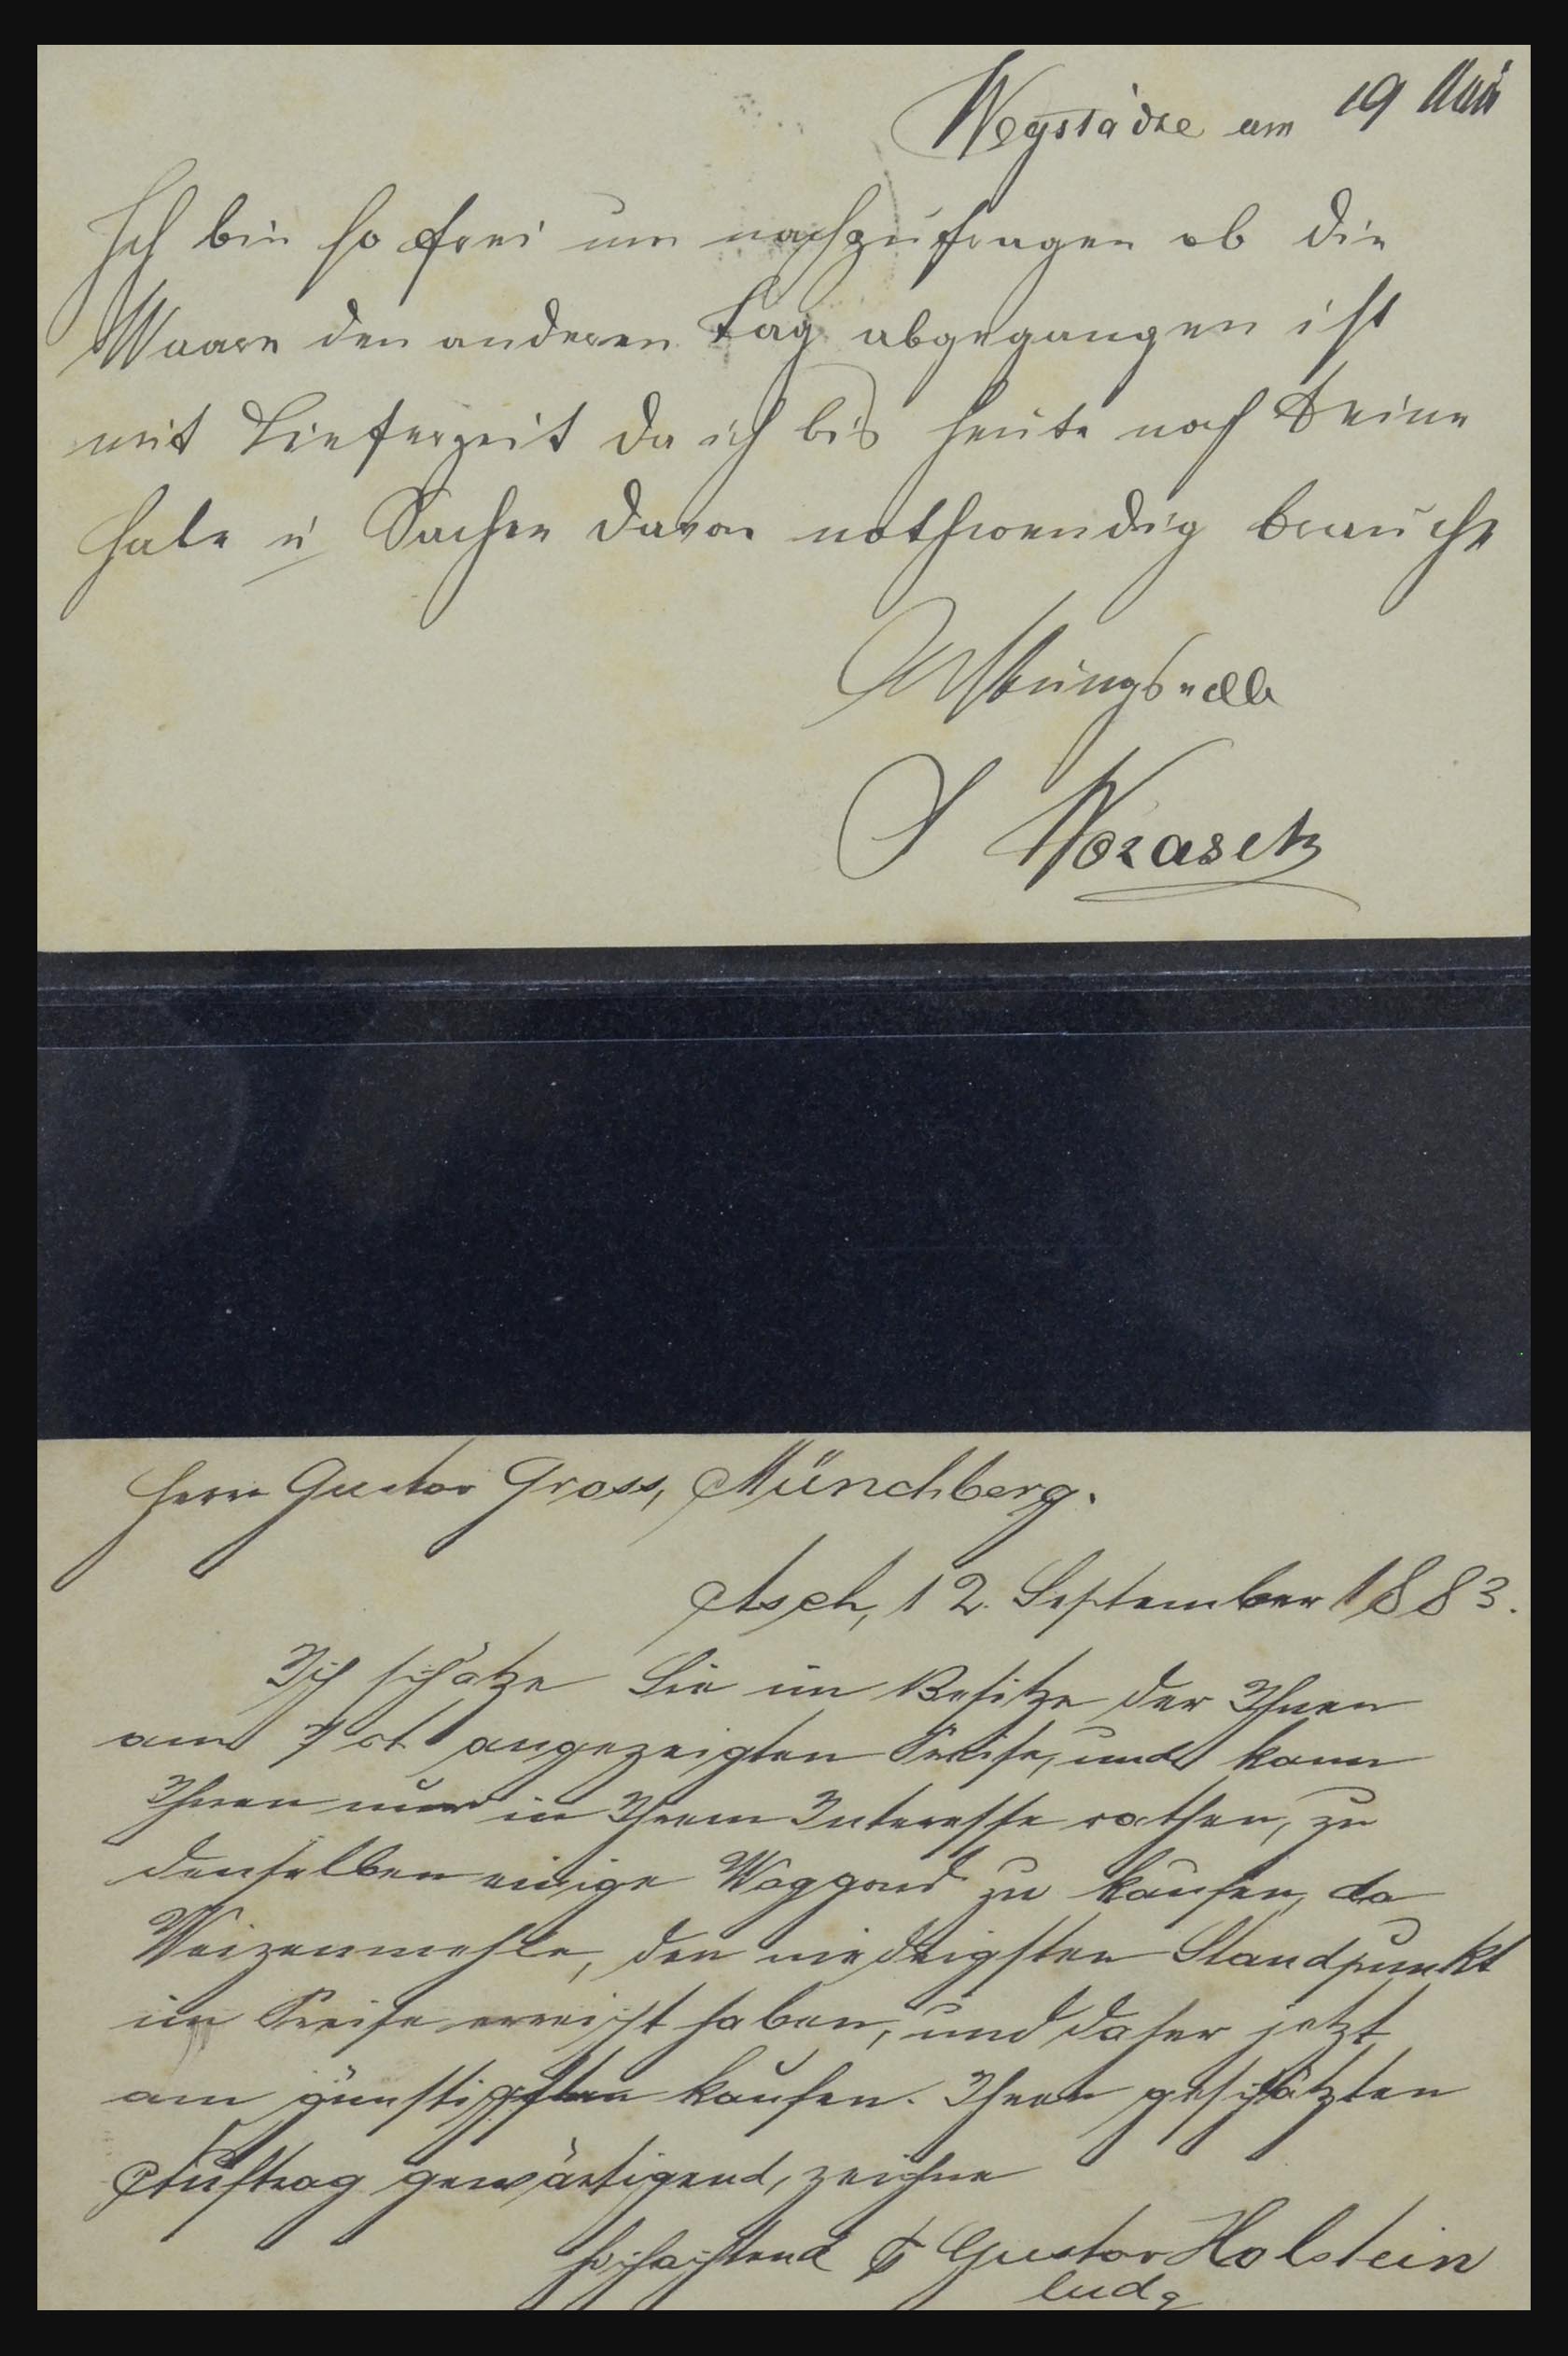 Wegstädtl am 19 Mai
Ich bin so frei um nachzufragen ob die
Waare den anderen Tag abgegangen ist
mit Lieferzeit da ich bis heute noch Keine
habe u Sachen davon nothwendig brauche
Achtungsvoll
Herrn Gustav Gross, Münchberg.
Asch, 12. September 1883.
Ich schätze Sie im Besitze der Ihnen
am 7 ct angezeigten Preise, und kann
Ihnen nur in Ihrem Interesse rathen, zu
denselben einige Waggons zu kaufen, da
Weizenmehle, den niedrigsten Standpunkt
im Preise erreicht haben, und daher jetzt
am günstigsten kaufen. Ihren geschätzten
Auftrag gewärtigend, zeichne
hochachtend Gustav Holstein